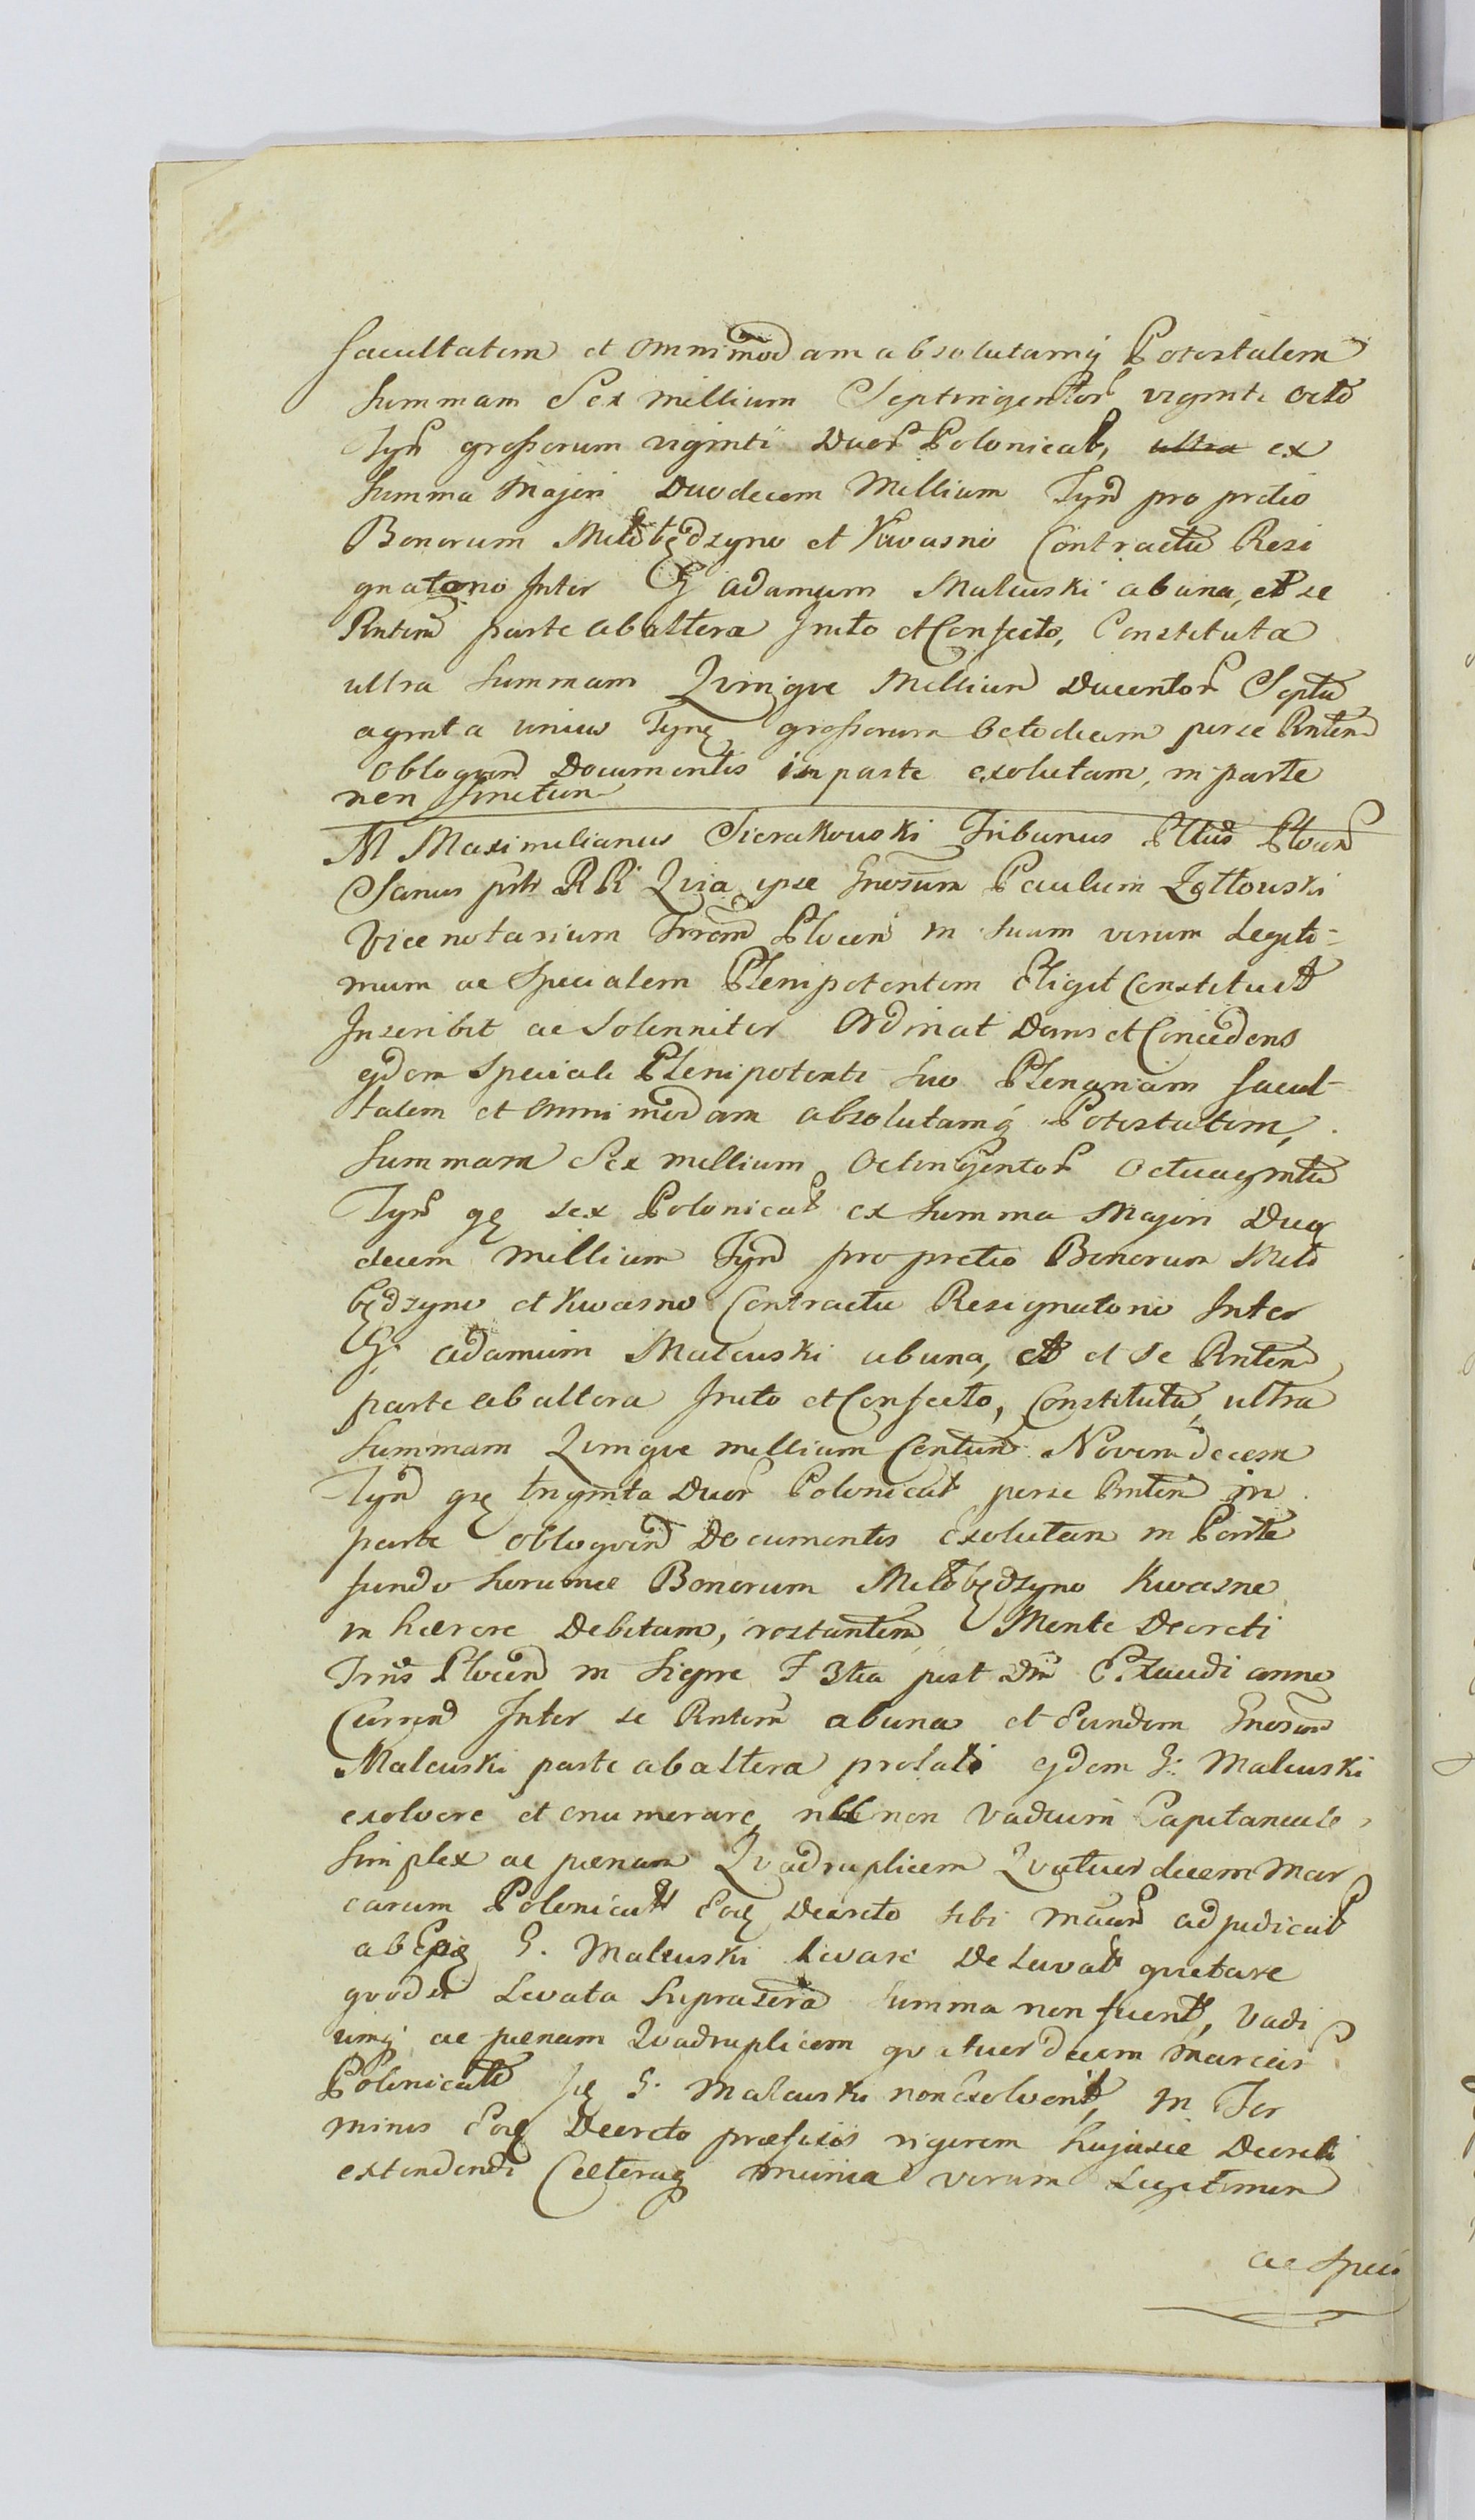 facultatem et omnimodam absolutamq Potestatem
Summam Sex millium Septingentor viginti octo
Tyn grossorum viginti Duor Polonical, ultra ex
Summa Majori Duodecem Millium Tyn pro pretio
Bonorum Miłobędzyno et Kwasno Contractu Resi
gnatorio Inter G Adamum Maleuski ab una, et se
Rnten parte ab altera Inito et Confecto, Constituta
ultra Summam Qvinqve Millium Ducentor Septu
aginta unius Tyn grossorum octodecem per se Rnten
obloqven Documentis in parte exolutam, in parte
non
M Maximilianus Sierakouski Tribunus Pttus Plocen
Sanus Qvia ipse Gnosum Paulum Zottouski
Vice notarium Trrem Plocen in Suum verum Legiti-
mum ac Specialem Plenipotentem Eligit Constituit
Inscribit ac Solenniter Ordinat Dans et Concedens
eidem Speciali Plenipotenti Suo Plenariam facul-
tatem et omnimodam absolutamq Potestatem,
Summam Sex millium Octingentor Octuaginta
Tyn gr sex Polonical ex Summa Majori Duo
decem Millium Tyn pro pretio Bonorum Miło
będzyno et Kwasno Contractu Resignatorio Inter
G. Adamum Maleuski ab una, et et se Rnten
parte ab altera Inito et Confecto, Constituta, ultra
Summam Qvinqve millium Centum Novem decem
Tyn gr triginta Duor Polonical per se Rnten in
parte obloqven Documentis Exolutam in Parte
fundo horumce Bonorum Miłobędzyno Kwasne
in hærere Debitam, restantem Mente Decreti
Trris Plocen in Siepre F 3tia post Dm Exaudi anno
Curren Inter se Rntem ab una et Eundem Gnosum
Maleuski parte ab altera prolati eidem G: Maleuski
exolvere et enumerare, nec non Vadium Capitaneale
Simplex ac pœnam Qvadruplicem Qvatuordecem Mar
carum Polonical Eoq Decreto sibi adjudicat
ab G. Maleuski levare De Levat quietare
qvodsi Levata Suprascra Summa non fuerit, Vadi
umq ac pœnam Qvadruplicem qvatuordecem Marcar
Polonical G. Maleuski non Exolverit, in Ter
minis Eoq Decreto præfixis rigorem hujusce Decreti
extendendi Cæteraq munia verum Legitimum
ac Speci